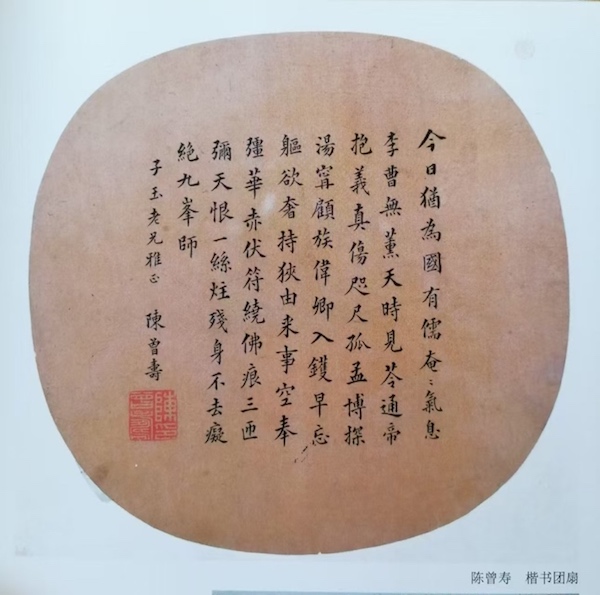 今日猶為國有儒奄〻氣息
李曹無薰天時見苓通帝
抱義真傷咫尺孤孟博探
湯甯顧族偉卿入鑊早忘
軀欲奢持狹由来事空奉
彊華赤伏符繞佛痕三匝
彌天恨一絲炷殘身不去癡
絕九峯師
子玉老兄雅正 陳曾壽
陈曾寿 楷书团扇